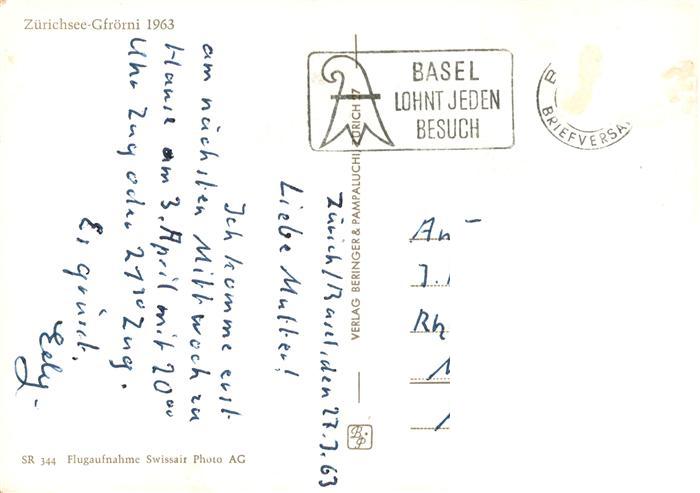 Zürichsee-Gfrörni 1963
Zürich/Basel, den 27.3.63
Liebe Mutter!
Ich komme erst
am nächsten Mittwoch zu
Hause am 3. April mit 20⁰⁰
Uhr Zug oder 21³⁰ Zug.
Es grüsst,
SR 344 Flugaufnahme Swissair Photo AG
VERLAG BERINGER & PAMPALUCHI, ZÜRICH
BASEL
LOHNT JEDEN
BESUCH
BRIEFVERSA
An
Rh